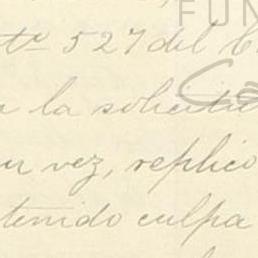 FUN
to 527 del C
a la solicitu
su vez, replicó
tenido culpa